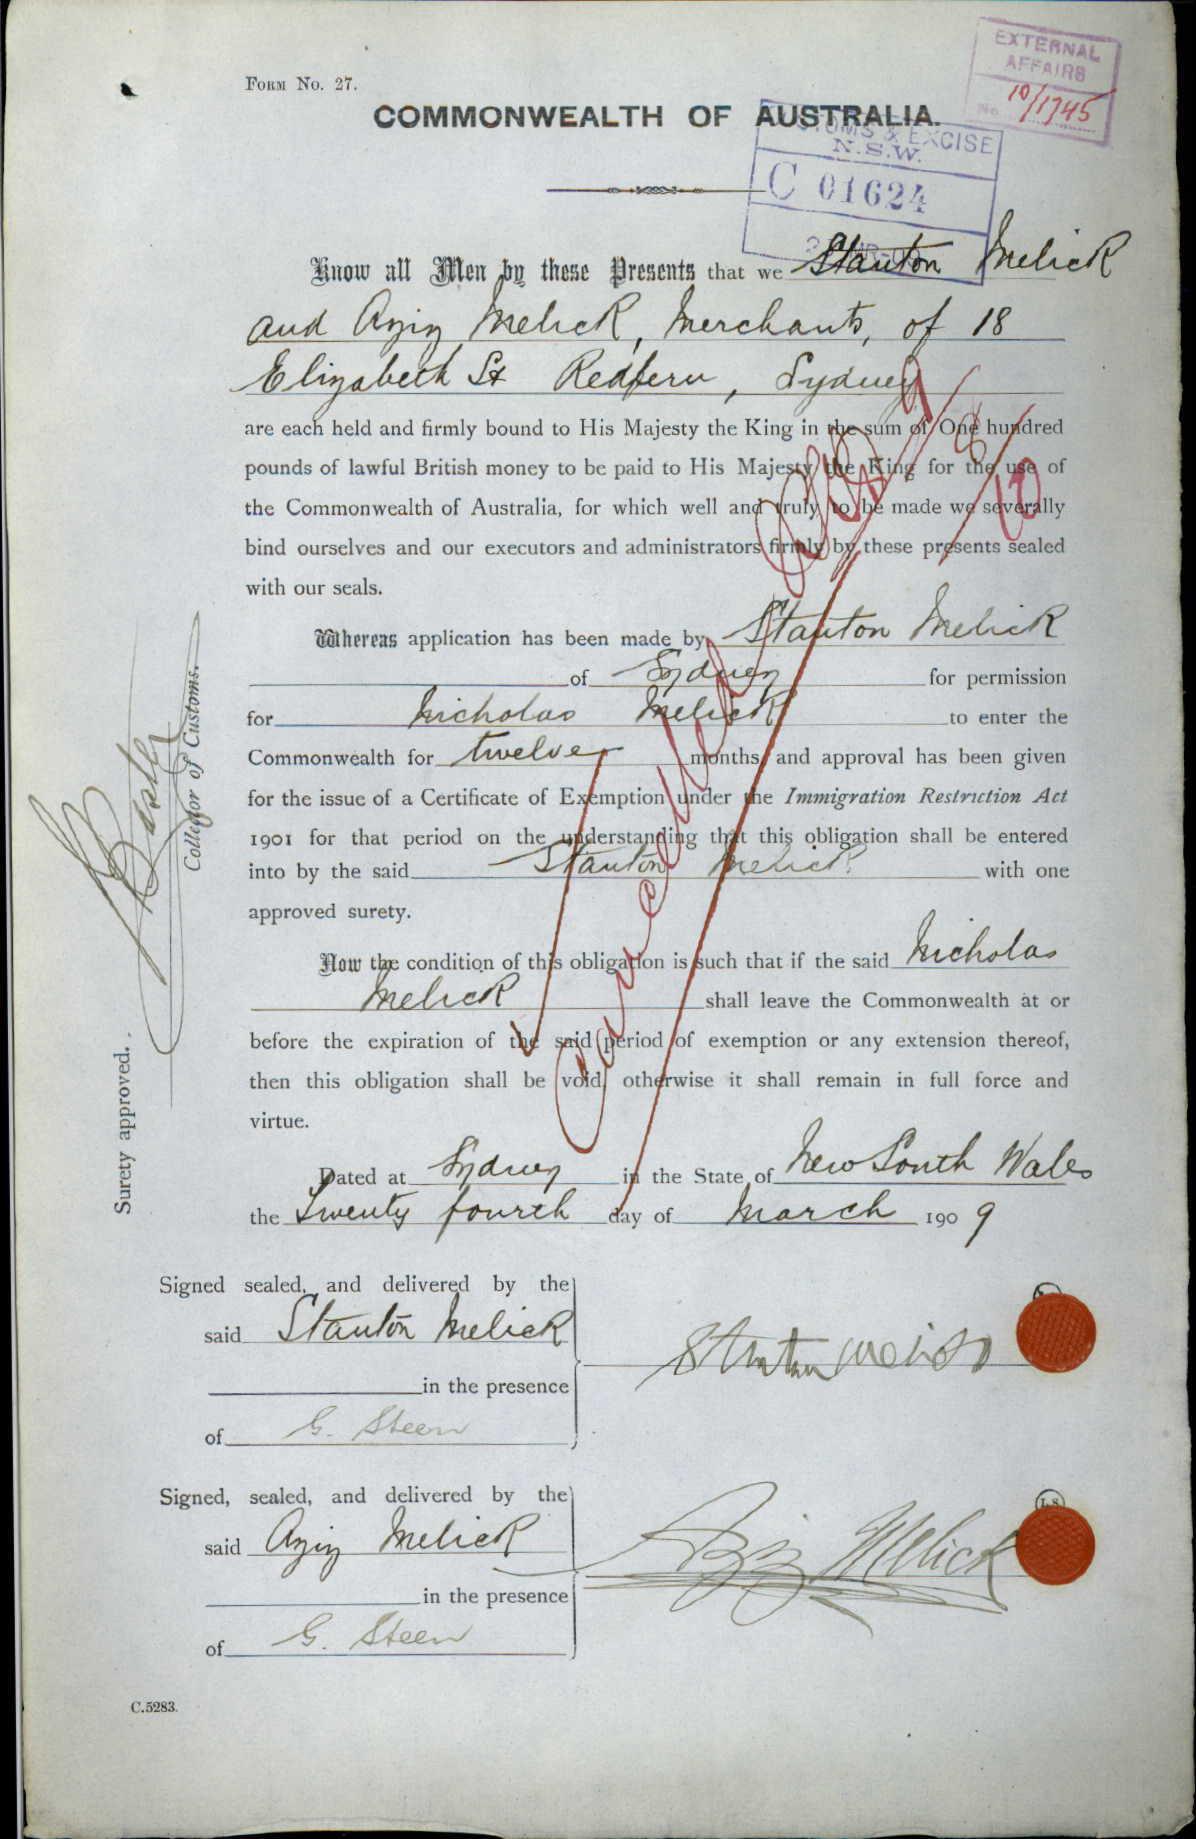 EXTERNAL
AFFAIRS
No. 10/1745
FORM No. 27.
COMMONWEALTH OF AUSTRALIA.
CUSTOMS & EXCISE
N.S.W.
C 01624
Know all Men by these Presents that we Stanton Melick
and Aziz Melick, Merchants, of 18
Elizabeth St Redfern, Sydney
are each held and firmly bound to His Majesty the King in the sum of One hundred
pounds of lawful British money to be paid to His Majesty the King for the use of
the Commonwealth of Australia, for which well and truly to be made we severally
bind ourselves and our executors and administrators firmly by these presents sealed
with our seals.
Whereas application has been made by Stanton Melick
of Sydney for permission
for Nicholas Melick to enter the
Commonwealth for twelve months, and approval has been given
for the issue of a Certificate of Exemption under the Immigration Restriction Act
1901 for that period on the understanding that this obligation shall be entered
into by the said Stanton Melick with one
approved surety.
Now the condition of this obligation is such that if the said Nicholas
Melick shall leave the Commonwealth at or
before the expiration of the said period of exemption or any extension thereof,
then this obligation shall be void, otherwise it shall remain in full force and
virtue.
Dated at Sydney in the State of New South Wales
the Twenty fourth day of March 1909
Cancelled
Surety approved.
Collector of Customs.
Signed sealed, and delivered by the
said Stanton Melick
in the presence
of G. Steen
Stanton Melick
Signed, sealed, and delivered by the
said Aziz Melick
in the presence
of G. Steen
L.S
Aziz Melick
C.5283.